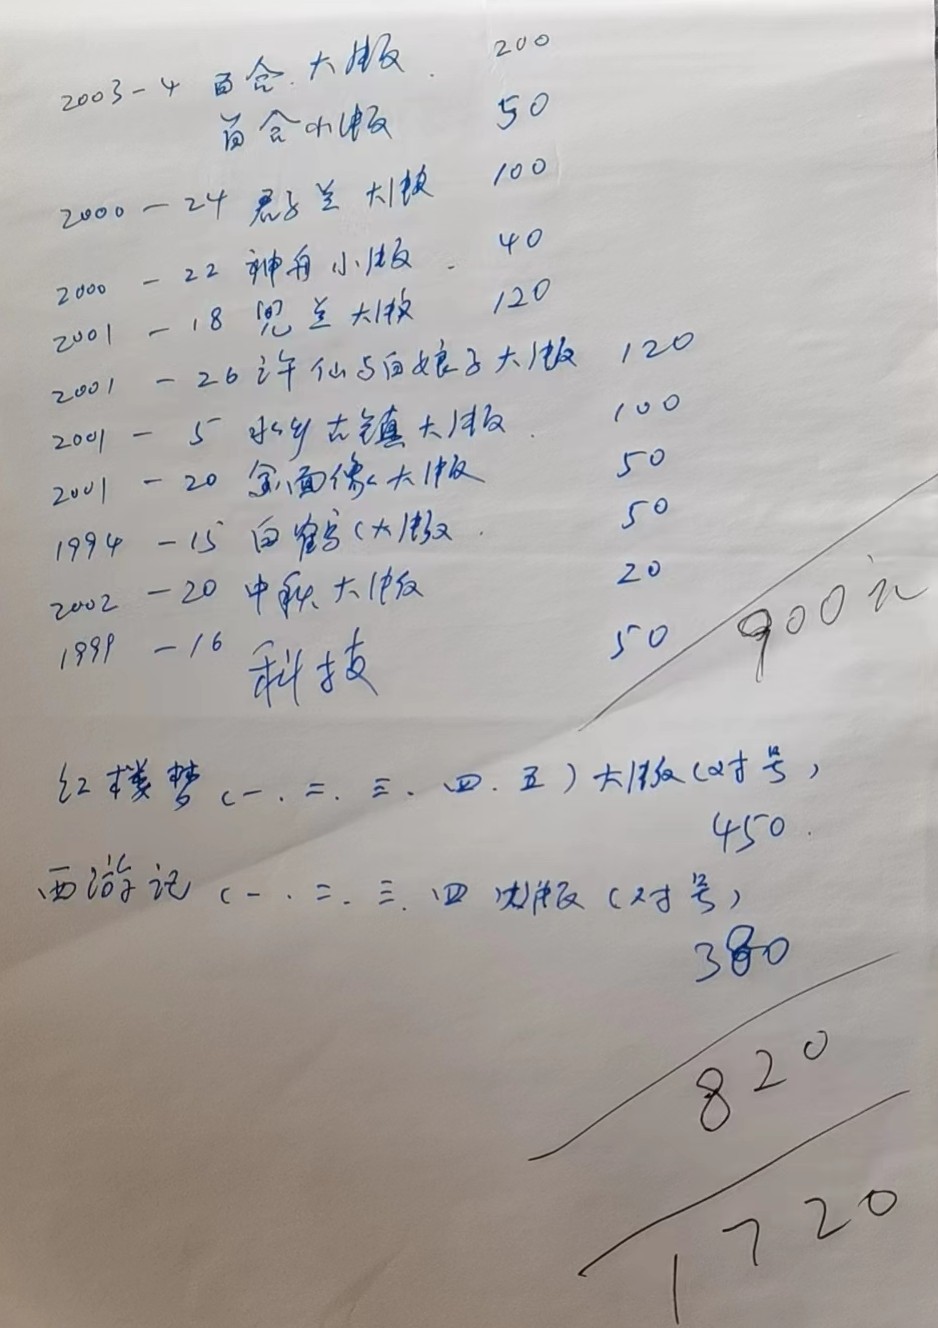 2003-4 百合.大版. 200
百合小版 50
2000-24 君子兰大版 100
2000-22 神舟小版. 40
2001-18 兜兰大版 120
2001-26 许仙与白娘子大版 120
2001-5 水乡古镇大版. 100
2001-20 金面像大版 50
1994-15 白鹤(大版. 50
2002-20 中秋大版 20
1999-16 科技 50
900元
红楼梦(一.二.三.四.五)大版(对号)
450.
西游记(一.二.三.四 大版(对号)
380
820
1720